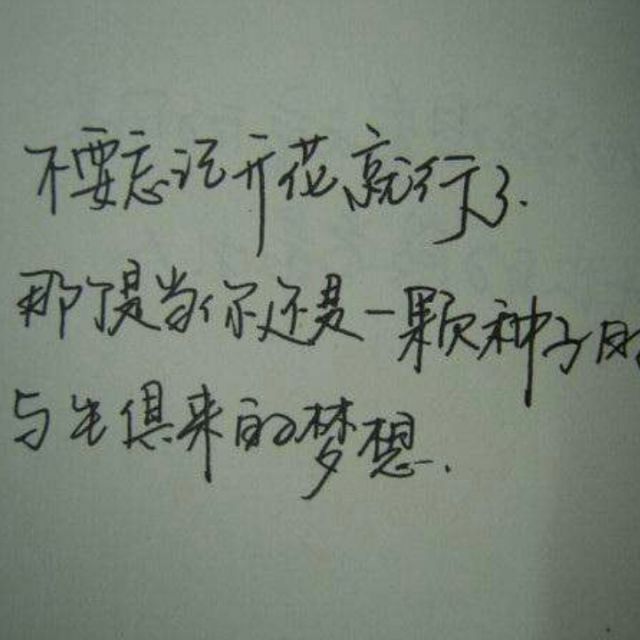 不要忘记开花就行了.
那是当你还是一颗种子时
与生俱来的梦想.